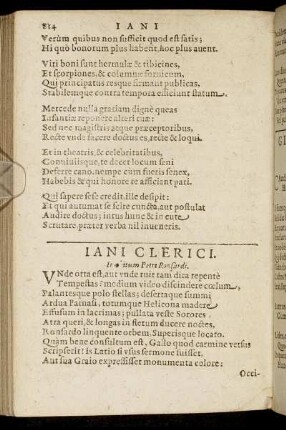 214 IANI
Verùm quibus non sufficit quod est satis;
Hi quò bonorum plus habent, hoc plus avent.
Viri boni sunt hermulæ & tibicines,
Et scorpiones, & columnæ fornicum,
Qui principatus resque firmant publicas,
Stabilemque contra tempora efficiunt statum.
Mercede nulla gratiam dignè queas
Infantiæ reponere alteri tuæ:
Sed nec magistris atque præceptoribus,
Recte unde facere doctus es, recte & loqui.
Et in theatris, & celebritatibus,
Conviviisque, te decet locum seni
Deferre cano. nempe cùm fueris senex,
Habebis & qui honore te afficiant pari.
Qui sapere sese credit, ille desipit:
Et qui autumat se scire cuncta, aut postulat
Audire doctus; intus hunc & in cute
Scrutare. præter verba nil inveneris.
IANI CLERICI.
In obitum Petri Ronsardi.
VNde orta est, aut unde ruit tam dira repentè
Tempestas? medium video discindere cœlum,
Palantesque polo stellas; desertaque summi
Ardua Parnasi, totumque Helicona madere
Effusum in lacrimas; pullata veste Sorores
Atra queri, & longas in fletum ducere noctes,
Ronsardo linquente orbem, Superisque locato.
Quàm bene consultum est, Gallo quod carmine versus
Scripserit! is Latio si usus sermone fuisset,
Aut sua Graio expressisset monumenta colore:
Occi-